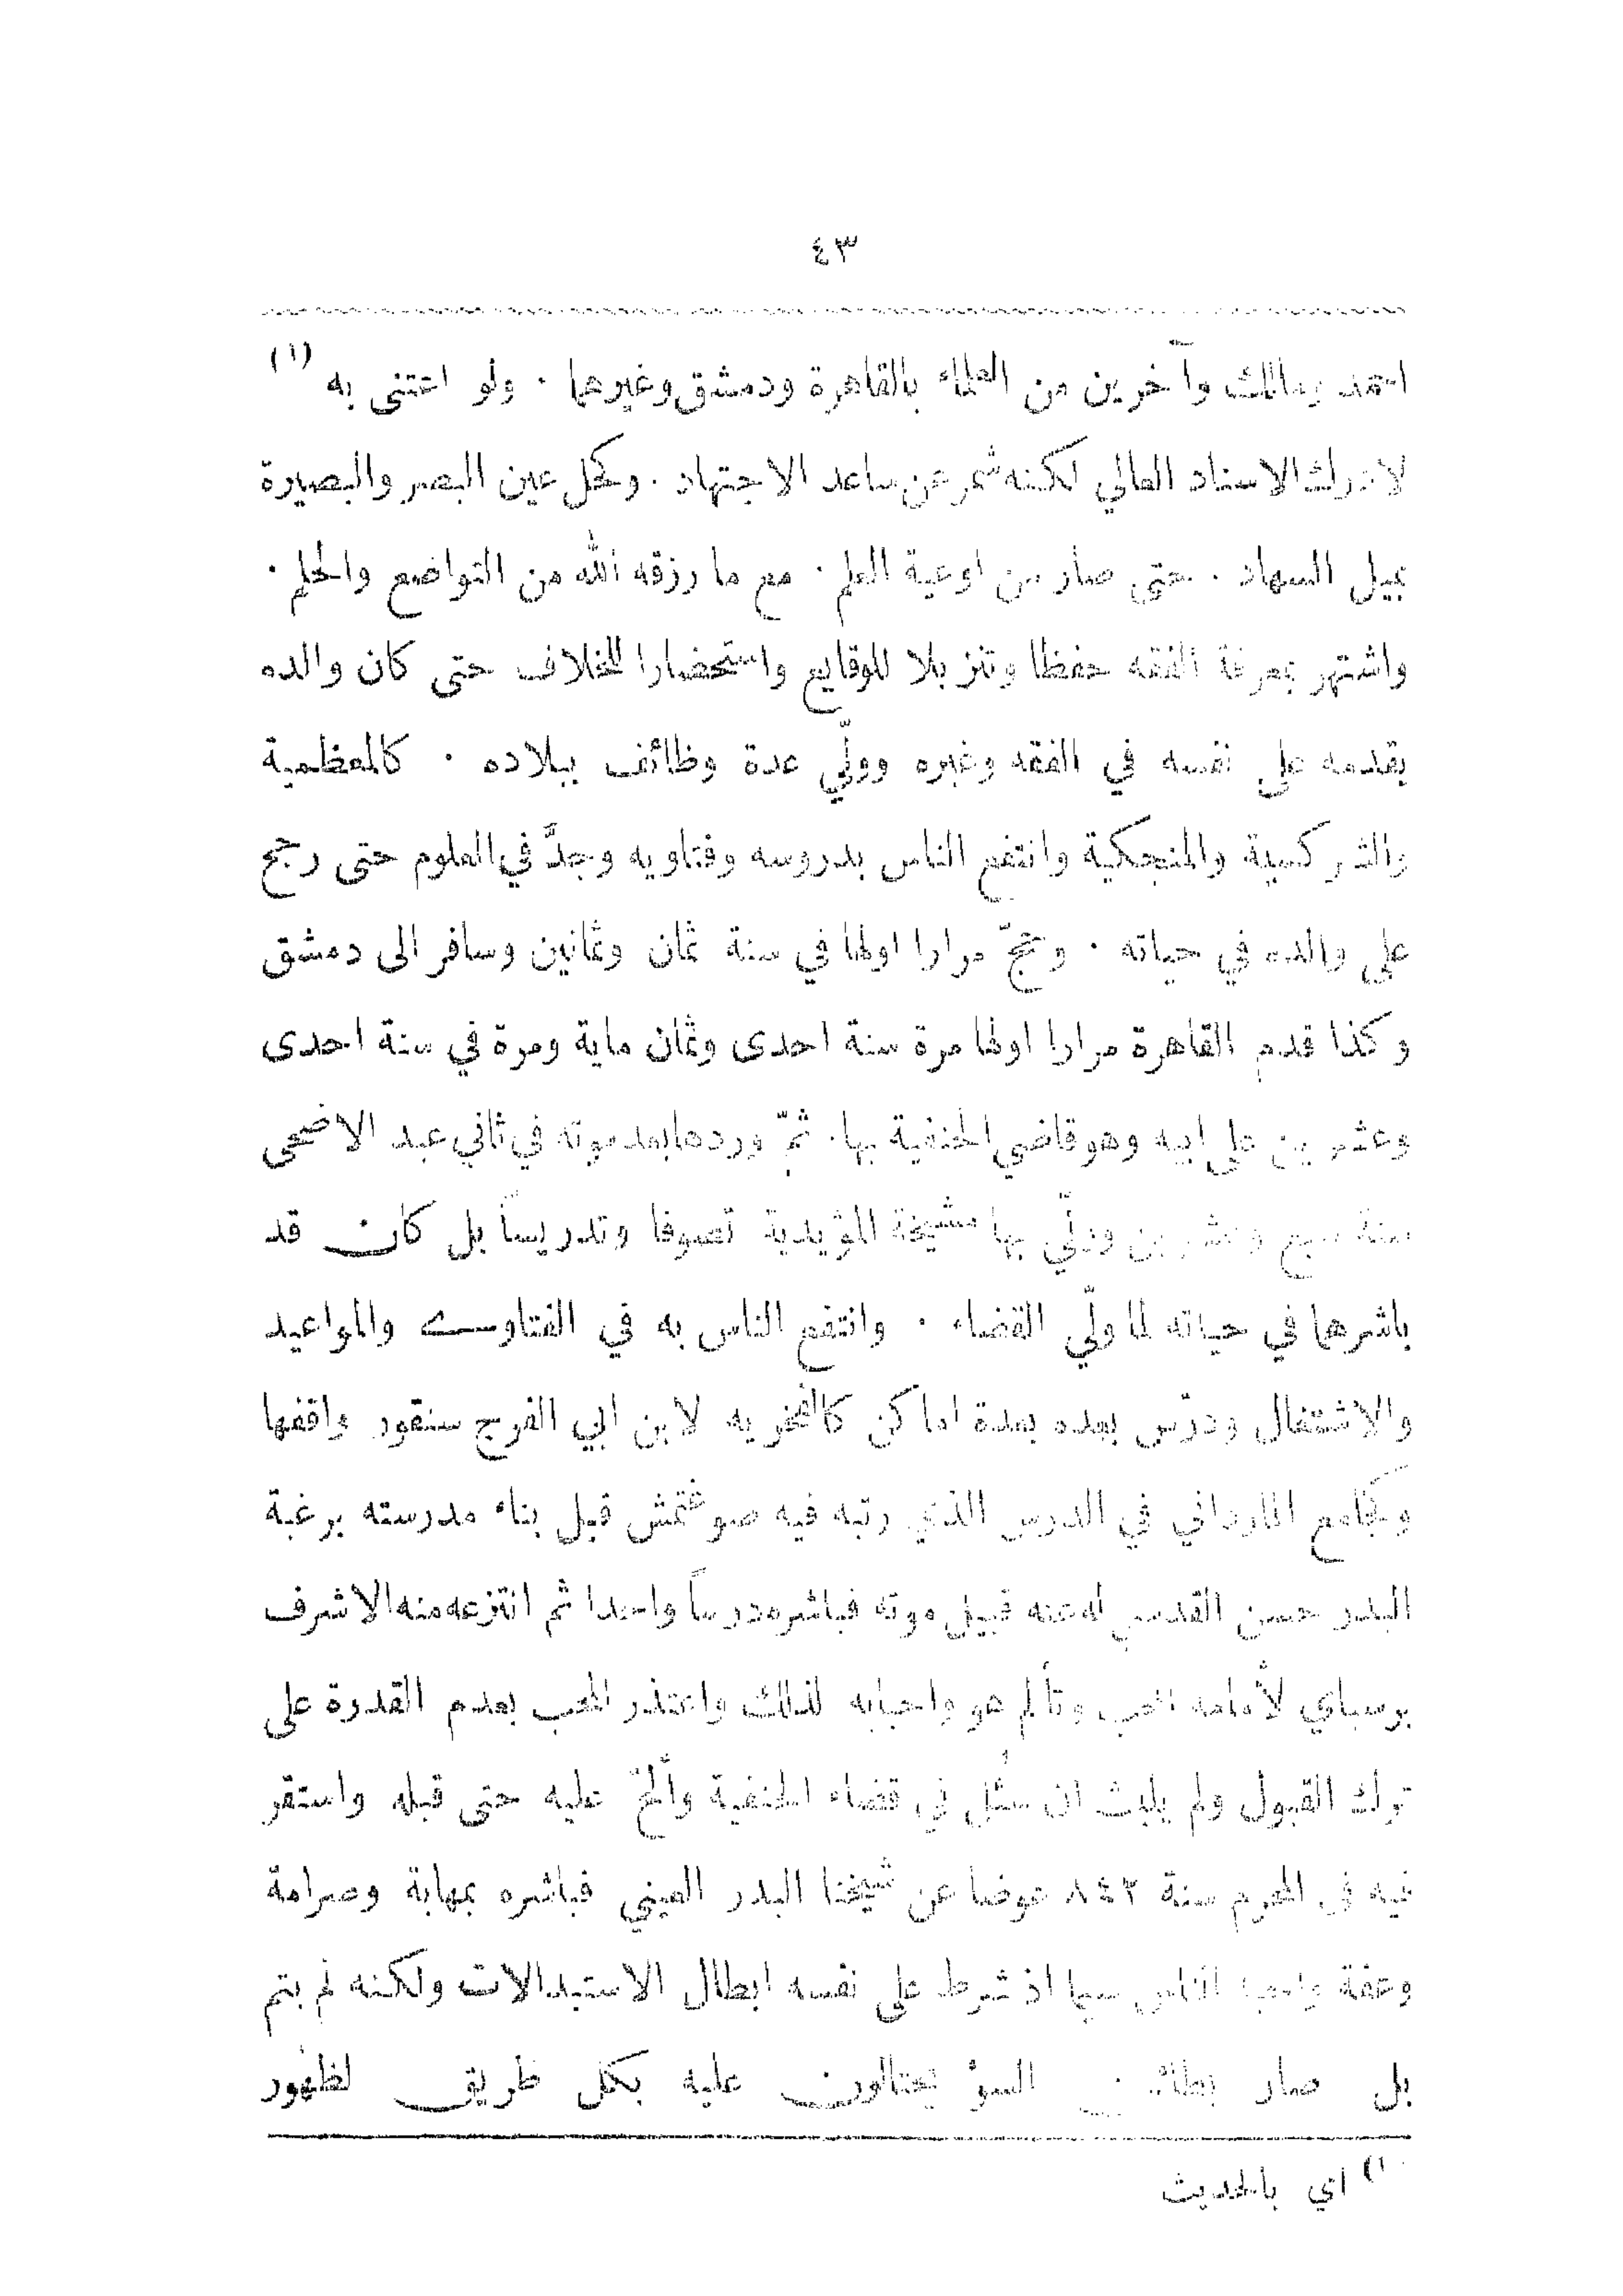 ٤٣
احمد ومالك وآخرين من العلماء بالقاهرة ودمشق وغيرهما . ولو اعتنى به (١)
لادرك الاسناد العالي لكنه شمر عن ساعد الاجتهاد . وكحل عين البصر والبصيرة
بميل السهاد . حتى صار من اوعية العلم . مع ما رزقه الله من التواضع والحلم .
واشتهر بمعرفة الفقه حفظا وتنزيلا للوقايع واستحضارا للخلاف حتى كان والده
يقدمه على نفسه في الفقه وغيره وولّي عدة وظائف ببلاده . كالمعظمية
والشركسية والمنجكية وانتفع الناس بدروسه وفتاويه وجدَّ في العلوم حتى رجح
على والده في حياته . وحجّ مرارا اولها في سنة ثمان وثمانين وسافر الى دمشق
وكذا قدم القاهرة مرارا اولها مرة سنة احدى وثمان ماية ومرة في سنة احدى
وعشرين على ابيه وهو قاضي الحنفية بها . ثمّ وردها بعد موته في ثاني عيد الاضحى
سنة سبع وعشرين وولّي بها مشيخة المؤيدية تصوفا وتدريساً بل كان قد
باشرها في حياته لما ولّي القضاء . وانتفع الناس به في الفتاوى والمواعيد
والاشتغال ودرّس بعده بعدة اماكن كالفخريه لابن ابي الفرج سنقور واقفها
وكجامع المارداني في الدرس الذي رتبه فيه صوغتمش قبل بناء مدرسته برغبة
البدر حسن القدسي له عنه قبيل موته فباشره درساً واحدا ثم انتزعه منه الاشرف
برسباي لأمامه المحب وتألم هو واحبابه لذلك واعتذر المحب بعدم القدرة على
ترك القبول ولم يلبث ان سُئل في قضاء الحنفية وألحّ عليه حتى قبله واستقر
فيه في المحرم سنة ٨٤٢ عوضا عن شيخنا البدر العيني فباشره بمهابة وصرامة
وعفة واحبه الناس سيما اذ شرط على نفسه ابطال الاستبدالات ولكنه لم يتم
بل صار السوؤ يحتالون عليه بكل طريق لظهور
(١) اي بالحديث